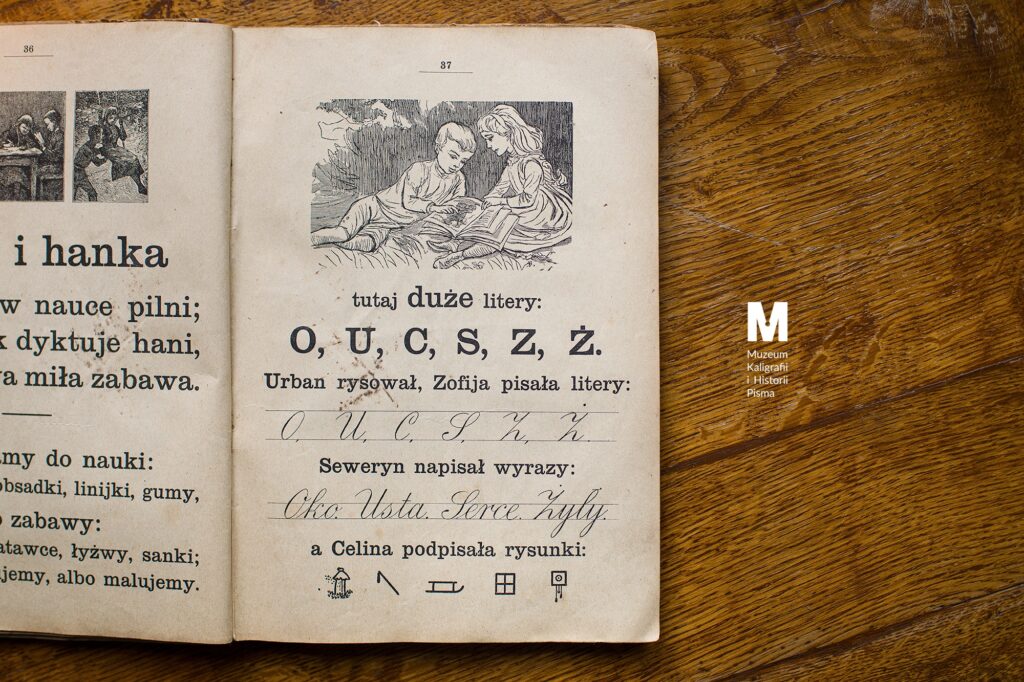 36
i hanka
w nauce pilni;
dyktuje hani,
miła zabawa.
do nauki:
obsadki, linijki, gumy,
zabawy:
łyżwy, sanki;
albo malujemy.
37
tutaj duże litery:
O, U, C, S, Z, Ż.
Urban rysował, Zofija pisała litery:
O, U, C, S, Z, Ż.
Seweryn napisał wyrazy:
Oko. Usta. Serce. Żyły.
a Celina podpisała rysunki:
M
Muzeum
Kaligrafii
i Historii
Pisma